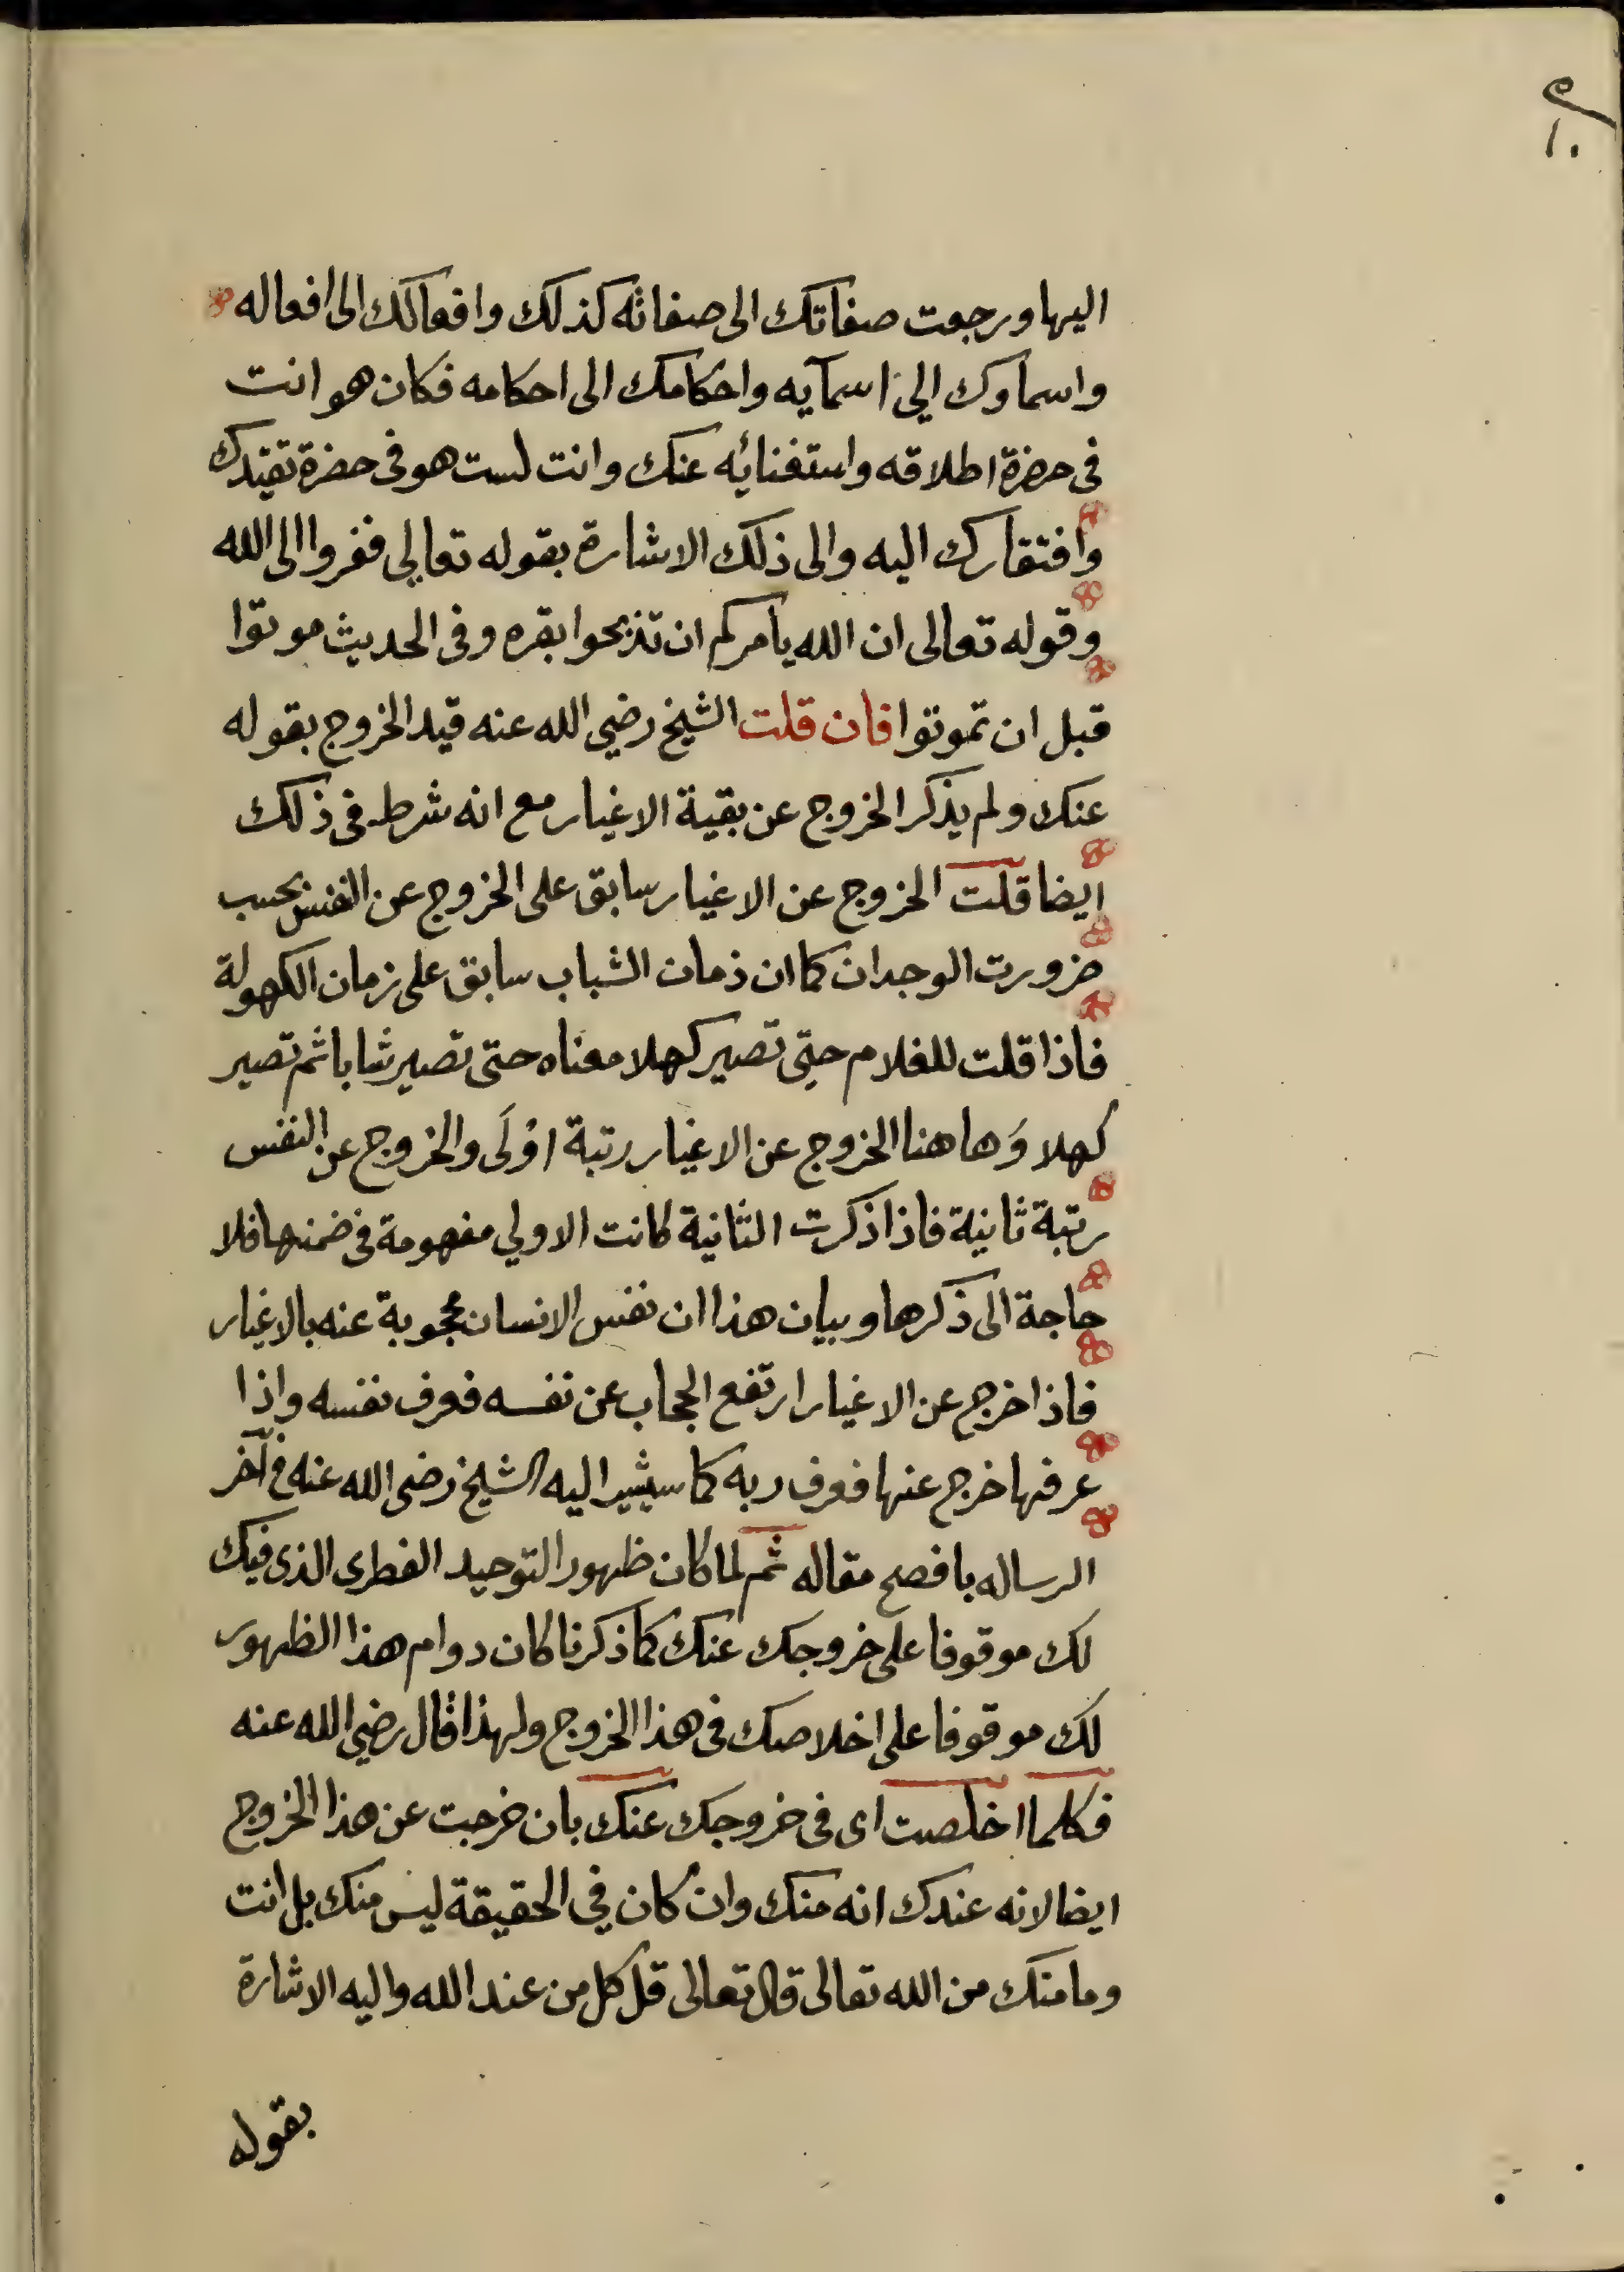 ١٠
اليها ورجعت صفاتك الى صفاته كذلك وافعالك الى افعاله
واسماوك الي اسمآيه واحكامك الى احكامه فكان هو انت
فى حضرة اطلاقه واستغنائه عنك وانت لست هو فى حضرة تقيدك
وافتقارك اليه والى ذلك الاشارة بقوله تعالي ففروا الى الله
وقوله تعالى ان الله يامركم ان تذبحوا بقره وفى الحديث موتوا
قبل ان تموتوا فان قلت الشيخ رضي الله عنه قيد الخروج بقوله
عنك ولم يذكر الخروج عن بقية الاغيار مع انه شرط فى ذلك
ايضا قلت الخروج عن الاغيار سابق على الخروج عن النفس بحسب
ضرورت الوجدان كما ان ذمان الشباب سابق على زمان الكهولة
فاذا قلت للغلام حتى تصير كهلا معناه حتى تصير شابا ثم تصير
كهلا وَها هنا الخروج عن الاغيار رتبة اوْلَى والخروج عن النفس
رتبة ثانية فاذا ذكرت الثانية كانت الاولي مفهومة فى ضمنها فلا
حاجة الى ذكرها وبيان هذا ان نفس الانسان محجوبة عنه بالاغيار
فاذا خرج عن الاغيار ارتفع الحجاب عن نفسه فعرف نفسه واذا
عرفها خرج عنها فعرف ربه كما سيشير اليه الشيخ رضى الله عنه في آخر
الرساله بافصح مقاله ثم لما كان ظهور التوحيد الفطرى الذى فيك
لك موقوفا على خروجك عنك كما ذكرنا كان دوام هذا الظهور
لك موقوفا على اخلاصك فى هذا الخروج ولهذا قال رضي الله عنه
فكلما اخلصت اى فى خروجك عنك بان خرجت عن هذا الخروج
ايضا لانه عندك انه منك وان كان في الحقيقة ليس منك بل انت
وما منك من الله تعالى قال تعالى قل كل من عند الله واليه الاشارة
بقوله